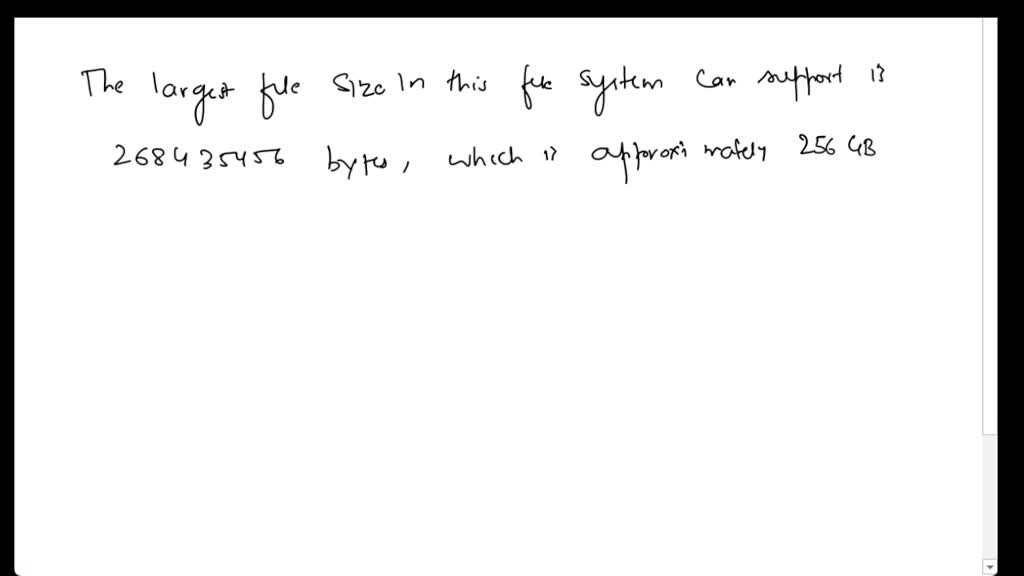 The largest file size in this file system can support is
268435456 bytes, which is approximately 256 GB